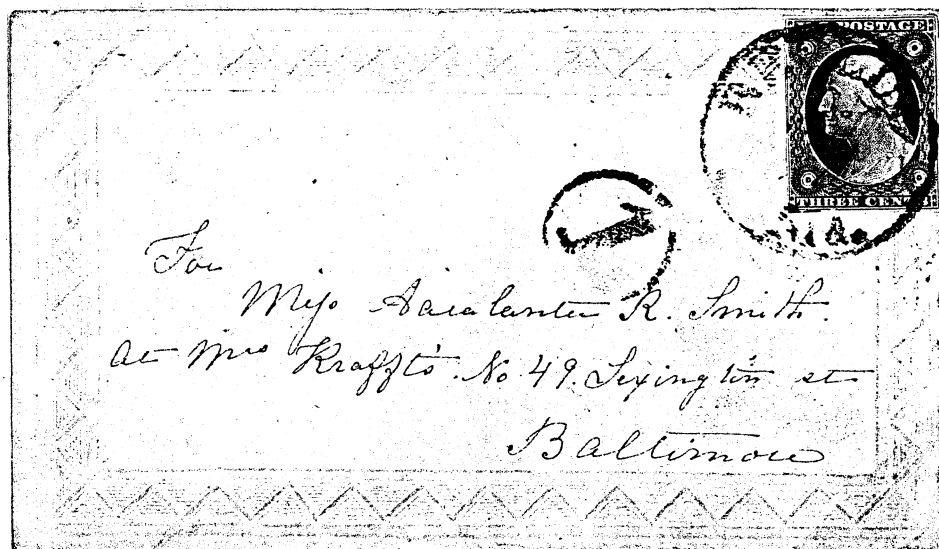 U.S. POSTAGE
THREE CENTS
For
Miss R. Smith.
At Mrs Krafft's. No 49. Lexington st
Baltimore